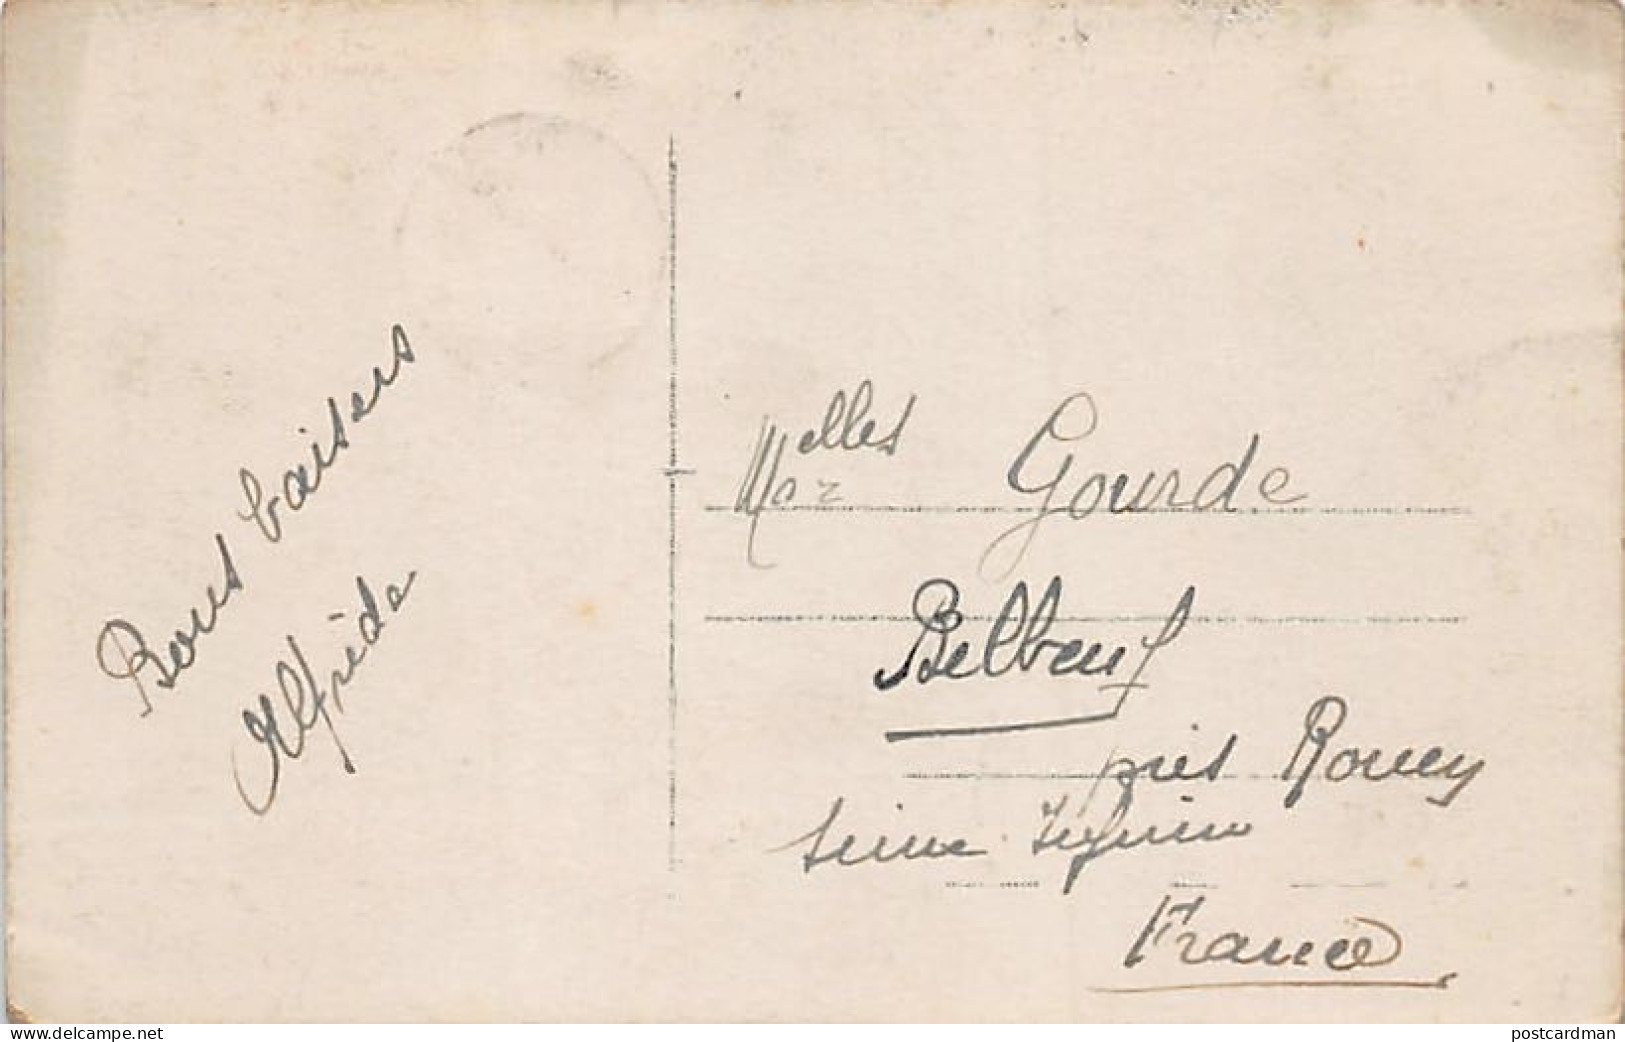 Bons baisers
Alfréda
Melles Gourde
Belbeuf
près Rouen
Seine
France
delcampe.net
postcardman